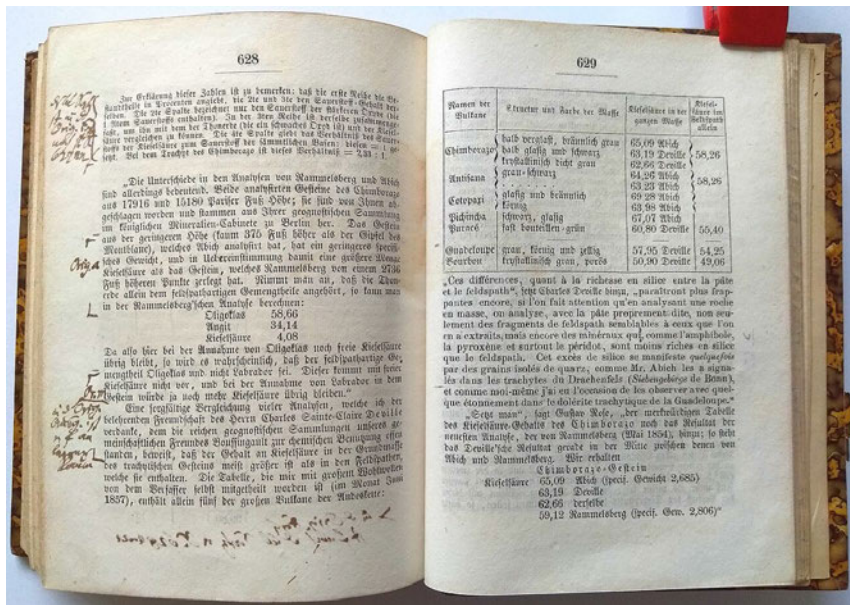 628
Zur Erklärung dieser Zahlen ist zu bemerken: daß die erste Reihe die Be-
standtheile in Procenten angiebt, die 2te und 3te den Sauerstoff-Gehalt der-
selben. Die 2te Spalte bezeichnet nur den Sauerstoff der stärkeren Oxyde (die
1 Atom Sauerstoff enthalten). In der 3ten Reihe ist derselbe zusammenge-
faßt, um ihn mit dem der Thonerde (die ein schwaches Oxyd ist) und der Kiesel-
säure vergleichen zu können. Die 4te Spalte giebt das Verhältniß des Sauer-
stoffs der Kieselsäure zum Sauerstoff der sämmtlichen Basen: diesen = 1 ge-
setzt. Bei dem Trachyt des Chimborazo ist dieses Verhältniß = 2,33 : 1.
„Die Unterschiede in den Analysen von Rammelsberg und Abich
sind allerdings bedeutend. Beide analysirten Gesteine des Chimborazo
aus 17916 und 15180 Pariser Fuß Höhe; sie sind von Ihnen ab-
geschlagen worden und stammen aus Ihrer geognostischen Sammlung
im königlichen Mineralien-Cabinete zu Berlin her. Das Gestein
aus der geringeren Höhe (kaum 375 Fuß höher als der Gipfel des
Montblanc), welches Abich analysirt hat, hat ein geringeres specifi-
sches Gewicht, und in Uebereinstimmung damit eine größere Menge
Kieselsäure als das Gestein, welches Rammelsberg von einem 2736
Fuß höheren Punkte zerlegt hat. Nimmt man an, daß die Thon-
erde allein dem feldspathartigen Gemengtheile angehört, so kann man
in der Rammelsberg'schen Analyse berechnen:
Oligoklas 58,66
Augit 34,14
Kieselsäure 4,08
Da also hier bei der Annahme von Oligoklas noch freie Kieselsäure
übrig bleibt, so wird es wahrscheinlich, daß der feldspathartige Ge-
mengtheil Oligoklas und nicht Labrador sei. Dieser kommt mit freier
Kieselsäure nicht vor, und bei der Annahme von Labrador in dem
Gestein würde ja noch mehr Kieselsäure übrig bleiben.“
Eine sorgfältige Vergleichung vieler Analysen, welche ich der
belehrenden Freundschaft des Herrn Charles Sainte-Claire Deville
verdanke, dem die reichen geognostischen Sammlungen unseres ge-
meinschaftlichen Freundes Boussingault zur chemischen Benutzung offen
standen, beweist, daß der Gehalt an Kieselsäure in der Grundmasse
des trachytischen Gesteins meist größer ist als in den Feldspathen,
welche sie enthalten. Die Tabelle, die mir mit großem Wohlwollen
von dem Verfasser selbst mitgetheilt worden ist (im Monat Juni
1857), enthält allein fünf der großen Vulkane der Andeskette:
629
Namen der Vulkane Structur und Farbe der Masse Kieselsäure in der ganzen Masse Kiesel-säure im Feldspath allein
Chimborazo halb verglast, bräunlich grau 65,09 Abich
halb glasig und schwarz 63,19 Deville 58,26
krystallinisch dicht grau 62,66 Deville
Antisana grau-schwarz 64,26 Abich 58,26
63,23 Abich
Cotopaxi glasig und bräunlich 69,28 Abich
körnig 63,98 Abich
Pichincha schwarz, glasig 67,07 Abich
Puracé fast bouteillen-grün 60,80 Deville 55,40
Guadeloupe grau, körnig und zellig 57,95 Deville 54,25
Bourbon krystallinisch grau, porös 50,90 Deville 49,06
„Ces différences, quant à la richesse en silice entre la pâte
et le feldspath“, setzt Charles Deville hinzu, „paraîtront plus frap-
pantes encore, si l'on fait attention qu'en analysant une roche
en masse, on analyse, avec la pâte proprement dite, non seu-
lement des fragments de feldspath semblables à ceux que l'on
en a extraits, mais encore des minéraux qui, comme l'amphibole,
la pyroxène et surtout le péridot, sont moins riches en silice
que le feldspath. Cet excès de silice se manifeste quelquefois
par des grains isolés de quarz, comme Mr. Abich les a signa-
lés dans les trachytes du Drachenfels (Siebengebirge de Bonn),
et comme moi-même j'ai eu l'occasion de les observer avec quel-
que étonnement dans le dolérite trachytique de la Guadeloupe.“
„Setzt man“, sagt Gustav Rose, „der merkwürdigen Tabelle
des Kieselsäure-Gehalts des Chimborazo noch das Resultat der
neusten Analyse, der von Rammelsberg (Mai 1854), hinzu; so steht
das Deville'sche Resultat gerade in der Mitte zwischen denen von
Abich und Rammelsberg. Wir erhalten
Chimborazo-Gestein
Kieselsäure 65,09 Abich (specif. Gewicht 2,685)
63,19 Deville
62,66 derselbe
59,12 Rammelsberg (specif. Gew. 2,806)“